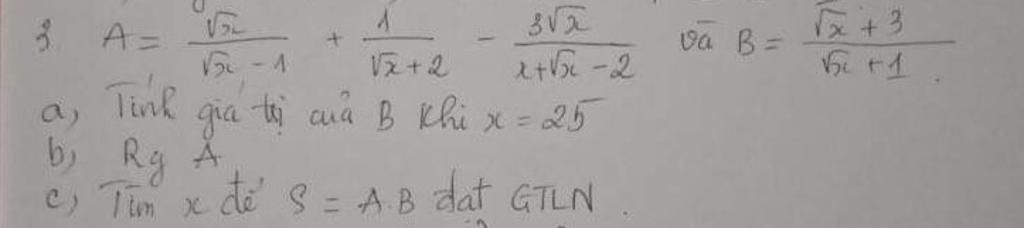 3. A = √x / (√x - 1) + 1 / (√x + 2) - 3√x / (x + √x - 2) và B = (√x + 3) / (√x + 1).
a, Tính giá trị của B khi x = 25
b, Rg A
c, Tìm x để S = A.B đạt GTLN.